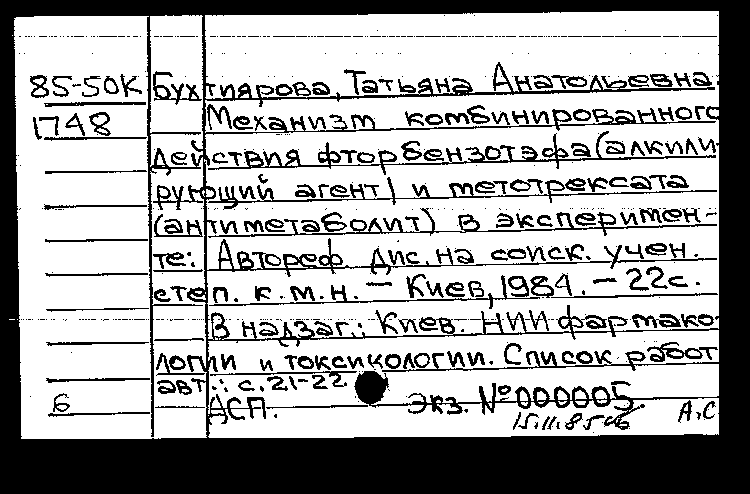 85-50К Бухтиярова, Татьяна Анатольевна
1748 Механизм комбинированного
действия фторбензотэфа (алкили-
рующий агент) и метотрексата
(антиметаболит) в эксперимен-
те: Автореф. дис. на соиск. учен.
степ. к.м.н. — Киев, 1984. — 22с.
В надзаг.: Киев. НИИ фармако-
логии и токсикологии. Список работ
авт.: с. 21-22.
б ДСП. Экз. №000005. А.С
15.11.85